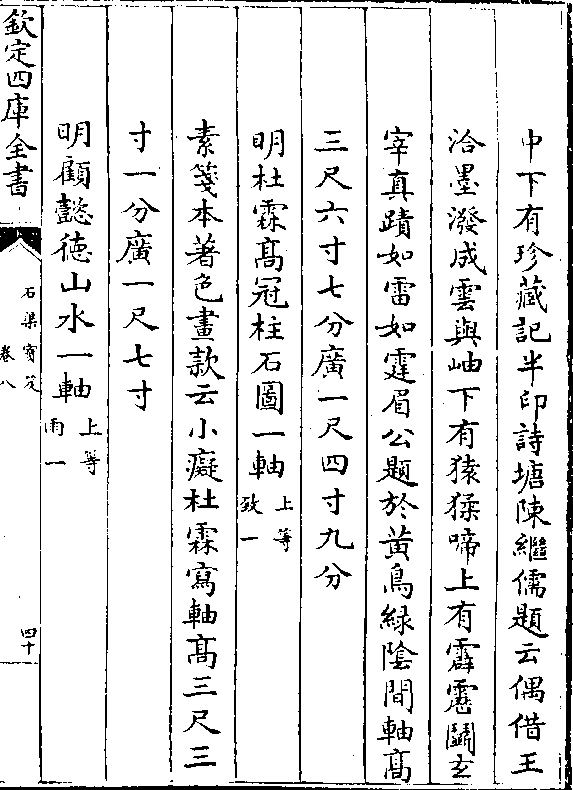 中下有珍藏記半印詩塘陳繼儒題云偶借王
洽墨潑成雲與岫下有猿猱啼上有霹靂鬬玄
宰真蹟如雷如霆眉公題於黄鳥緑隂間軸髙
三尺六寸七分廣一尺四寸九分
明杜霖髙冠柱石圖一軸上等致一
素箋本著色畫款云小癡杜霖寫軸髙三尺三
寸一分廣一尺七寸
明顧懿徳山水一軸上等雨一
欽定四庫全書
石渠寳笈
卷八
四十